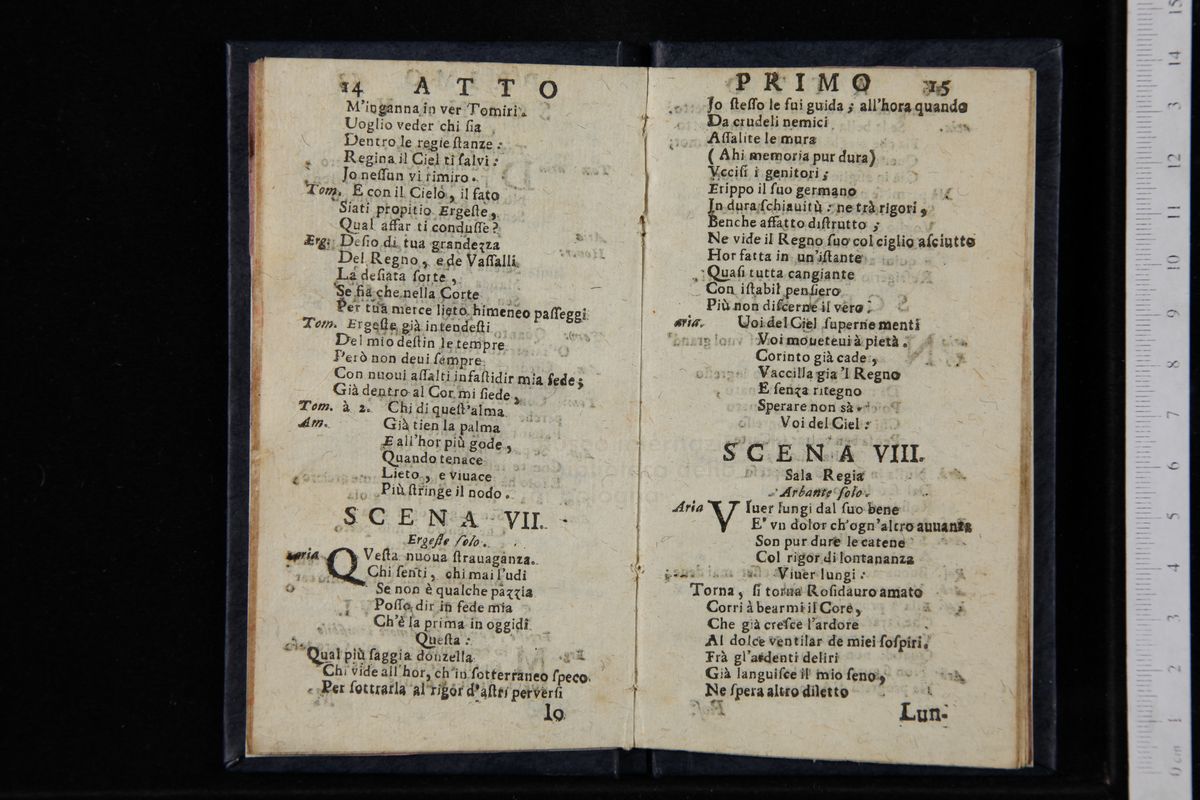 14 ATTO
M'inganna in ver Tomiri.
Uoglio veder chi ſia
Dentro le regie ſtanze:
Regina il Ciel ti ſalvi:
Jo neſſun vi rimiro.
Tom. E con il Cielo, il fato
Siati propitio Ergeſte,
Qual affar ti conduſſe?
Erg. Deſio di tua grandezza
Del Regno, e de Vaſſalli
La deſiata ſorte,
Se ſia che nella Corte
Per tua merce lieto himeneo paſſeggi
Tom. Ergeſte già intendeſti
Del mio deſtin le tempre
Però non deui ſempre
Con nuoui aſſalti infaſtidir mia fede;
Già dentro al Cor mi ſiede,
Tom. à 2. Chi di queſt'alma
Am. Già tien la palma
E all'hor più gode,
Quando tenace
Lieto, e viuace
Più ſtringe il nodo.
SCENA VII.
Ergeſte ſolo.
aria QVeſta nuoua ſtrauaganza.
Chi ſentì, chi mai l'udì
Se non è qualche pazzia
Poſſo dir in fede mia
Ch'è la prima in oggidì
Queſta:
Qual più ſaggia donzella
Chi vide all'hor, ch'in ſotterraneo ſpeco
Per ſottrarla al rigor d'aſtri perverſi
Io
PRIMO 15
Jo ſteſſo le fui guida; all'hora quando
Da crudeli nemici
Aſſalite le mura
(Ahi memoria pur dura)
Vcciſi i genitori;
Erippo il ſuo germano
In dura ſchiauitù: ne trà rigori,
Benche affatto diſtrutto;
Ne vide il Regno ſuo col ciglio aſciutto
Hor fatta in un'iſtante
Quaſi tutta cangiante
Con iſtabil penſiero
Più non diſcerne il vero:
aria. Uoi del Ciel ſuperne menti
Voi moueteui à pietà.
Corinto già cade,
Vaccilla gia 'l Regno
E ſenza ritegno
Sperare non sà.
Voi del Ciel:
SCENA VIII.
Sala Regia
Arbante ſolo.
Aria VIuer lungi dal ſuo bene
E' vn dolor ch'ogn'altro auuanza
Son pur dure le catene
Col rigor di lontananza
Viuer lungi:
Torna, ſi torna Roſidauro amato
Corri à bearmi il Core,
Che già creſce l'ardore
Al dolce ventilar de miei ſoſpiri.
Frà gl'ardenti deliri
Già languiſce il mio ſeno,
Ne ſpera altro diletto
Lun-